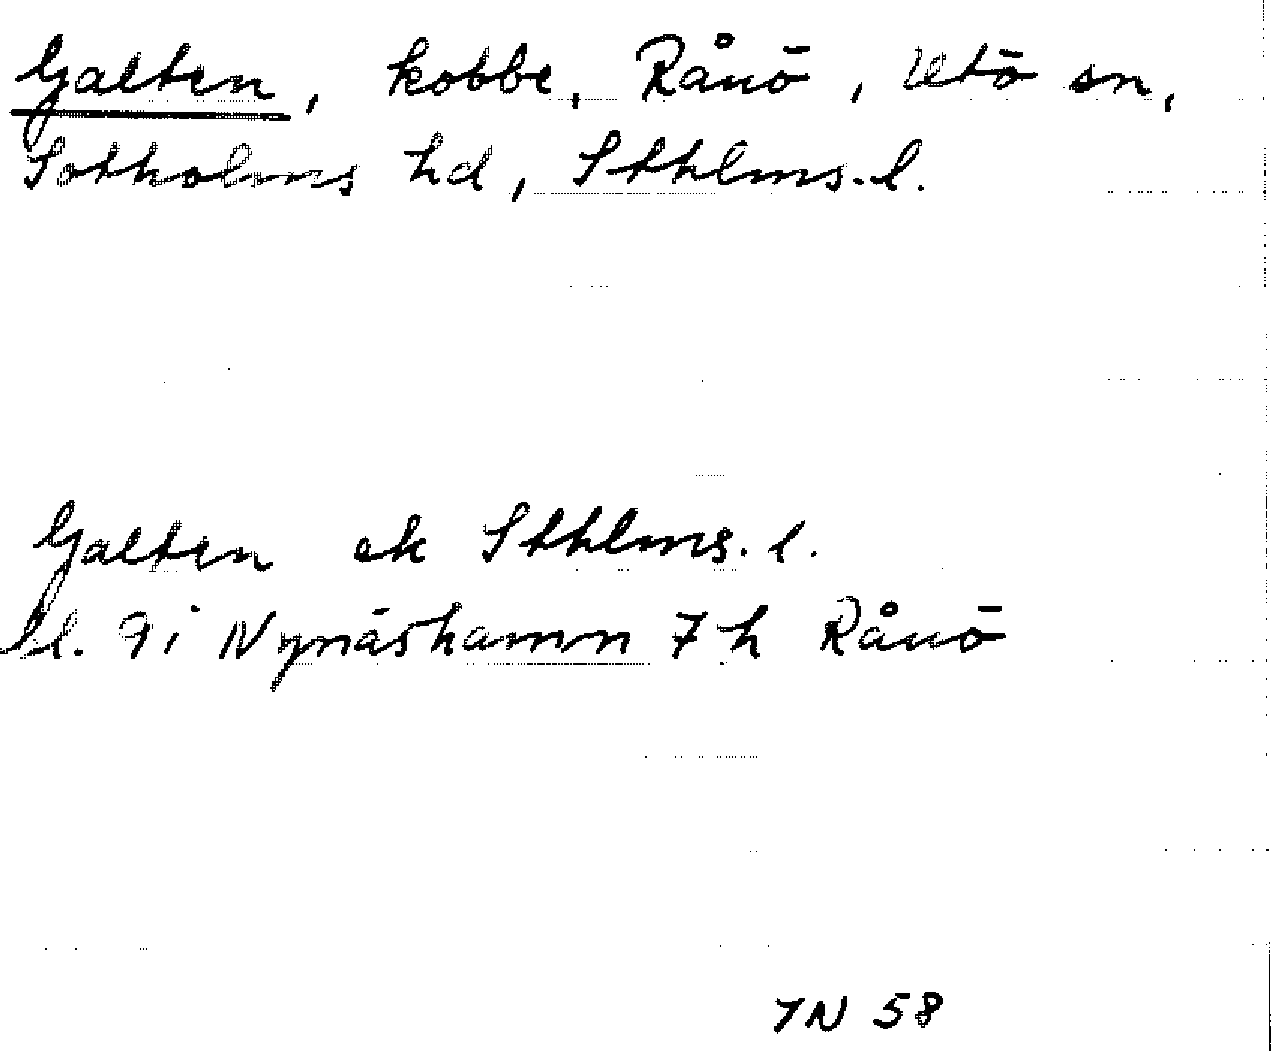 Galten, kobbe, Rånö, Utö sn,
Sotholms hd, Sthlms. l.
Galten ek Sthlms. l.
bl. 9i Nynäshamn 7 h Rånö
7N 58